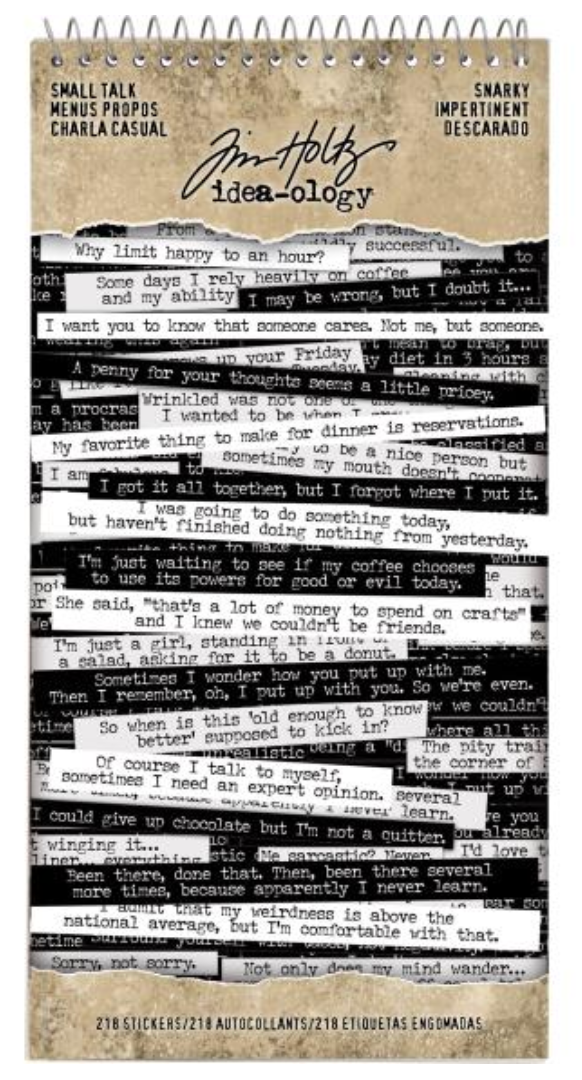 SMALL TALK
MENUS PROPOS
CHARLA CASUAL
SNARKY
IMPERTINENT
DESCARADO
Tim Holtz
idea-ology
From a
successful.
Why limit happy to an hour?
Some days I rely heavily on coffee
and my ability
I may be wrong, but I doubt it...
I want you to know that someone cares. Not me, but someone.
up your Friday
diet in 3 hours
A penny for your thoughts seems a little pricey.
Wrinkled was not one of
I wanted to be when I
My favorite thing to make for dinner is reservations.
to be a nice person but
sometimes my mouth doesn't
I am
I got it all together, but I forgot where I put it.
I was going to do something today,
but haven't finished doing nothing from yesterday.
I'm just waiting to see if my coffee chooses
to use its powers for good or evil today.
that.
She said, "that's a lot of money to spend on crafts"
and I knew we couldn't be friends.
I'm just a girl, standing in front of
a salad, asking for it to be a donut.
Sometimes I wonder how you put up with me.
Then I remember, oh, I put up with you. So we're even.
So when is this 'old enough to know
better' supposed to kick in?
where all
being a
The pity
the corner of
Of course I talk to myself,
sometimes I need an expert opinion.
several
more times, because apparently I never learn.
I could give up chocolate but I'm not a quitter.
already
winging it...
everything
Me sarcastic? Never.
I'd love
Been there, done that. Then, been there several
more times, because apparently I never learn.
I admit that my weirdness is above the
national average, but I'm comfortable with that.
Sorry, not sorry.
Not only does my mind wander...
218 STICKERS/218 AUTOCOLLANTS/218 ETIQUETAS ENGOMADAS